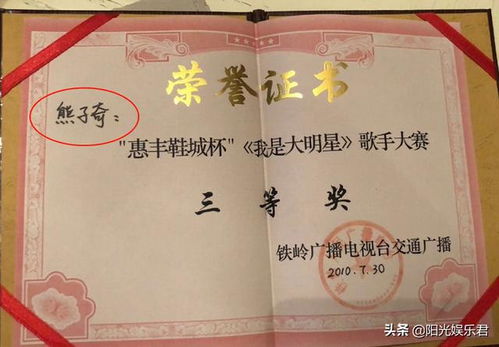 荣誉证书
熊子奇：
"惠丰鞋城杯"《我是大明星》歌手大赛
三等奖
铁岭广播电视台交通广播
2010.7.30
头条 @阳光娱乐君